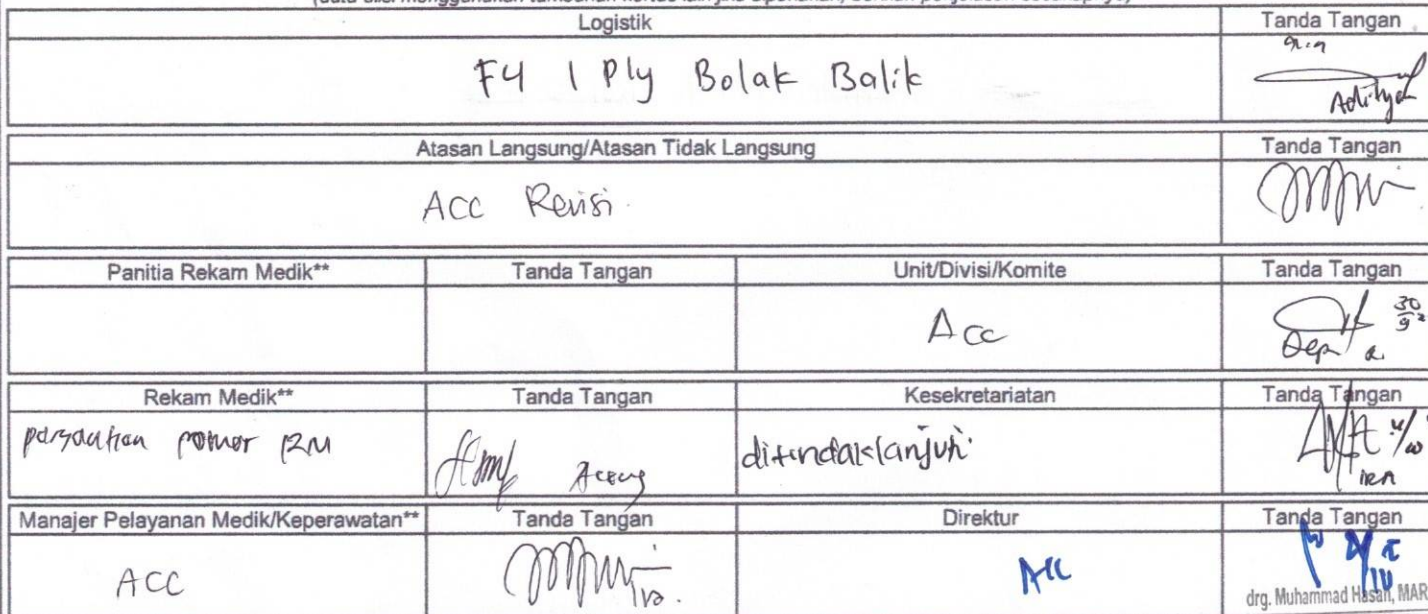 Logistik Tanda Tangan
F4 1 Ply Bolak Balik
Aditya
Atasan Langsung/Atasan Tidak Langsung Tanda Tangan
ACC Revisi
Panitia Rekam Medik** Tanda Tangan Unit/Divisi/Komite Tanda Tangan
Acc 30/9
Rekam Medik** Tanda Tangan Kesekretariatan Tanda Tangan
nomor RM ditindaklanjuti
Manajer Pelayanan Medik/Keperawatan** Tanda Tangan Direktur Tanda Tangan
ACC Acc
drg. Muhammad Hasan, MAR